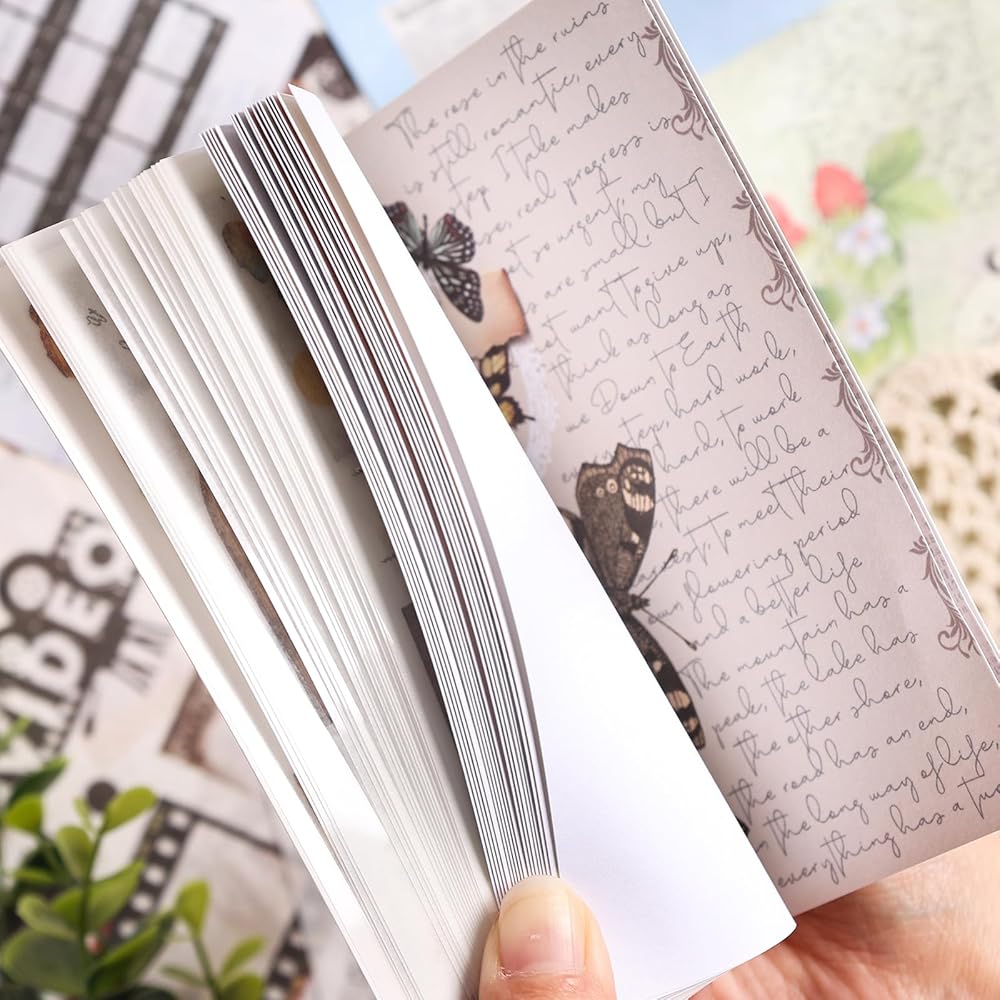 The rose in the ruins
is still romantic, every
step I take makes
se, real progress is
ot so urgent, my
s are small, but I
ot want to give up,
think as long as
we Down to Earth
top, hard work,
hard, to work
, there will be a
arvest, to meet their
own flowering period
and a better life
The mountain has a
peak, the lake has
the other shore,
the road has an end,
in the long way of life,
everything has a tur
VIDEO